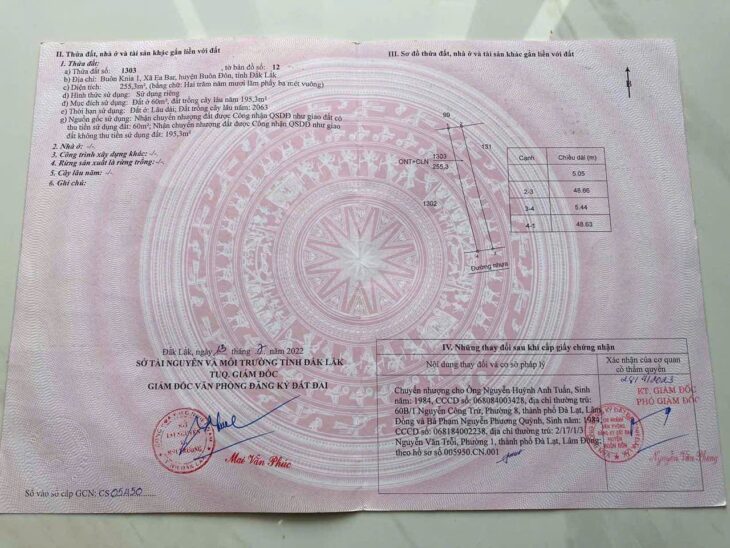 II. Thửa đất, nhà ở và tài sản khác gắn liền với đất
1. Thửa đất:
a) Thửa đất số: 1303 , tờ bản đồ số: 12
b) Địa chỉ: Buôn Knia 1, Xã Ea Bar, huyện Buôn Đôn, tỉnh Đắk Lắk
c) Diện tích: 255,3m², (bằng chữ: Hai trăm năm mươi lăm phẩy ba mét vuông)
d) Hình thức sử dụng: Sử dụng riêng
đ) Mục đích sử dụng: Đất ở 60m², đất trồng cây lâu năm 195,3m²
e) Thời hạn sử dụng: Đất ở: Lâu dài; Đất trồng cây lâu năm: 2063
g) Nguồn gốc sử dụng: Nhận chuyển nhượng đất được Công nhận QSDĐ như giao đất có
thu tiền sử dụng đất: 60m²; Nhận chuyển nhượng đất được Công nhận QSDĐ như giao
đất không thu tiền sử dụng đất: 195,3m²
2. Nhà ở: -/-
3. Công trình xây dựng khác: -/-
4. Rừng sản xuất là rừng trồng: -/-
5. Cây lâu năm: -/-
6. Ghi chú:
Đắk Lắk, ngày 13 tháng 7 năm 2022
SỞ TÀI NGUYÊN VÀ MÔI TRƯỜNG TỈNH ĐẮK LẮK
TUQ. GIÁM ĐỐC
GIÁM ĐỐC VĂN PHÒNG ĐĂNG KÝ ĐẤT ĐAI
SỞ
TÀI NGUYÊN
VÀ
MÔI TRƯỜNG
Mai Văn Phúc
Số vào sổ cấp GCN: CS05450
III. Sơ đồ thửa đất, nhà ở và tài sản khác gắn liền với đất
B
90
131
1303
ONT+CLN
255,3
1302
Đường nhựa
Cạnh Chiều dài (m)
5.05
2-3
3-4 5.44
4-1 48.63
IV. Những thay đổi sau khi cấp giấy chứng nhận
Nội dung thay đổi và cơ sở pháp lý
Xác nhận của cơ quan
có thẩm quyền
Chuyển nhượng cho Ông Nguyễn Huỳnh Anh Tuấn, Sinh
năm: 1984, CCCD số: 068084003428, địa chỉ thường trú :
60B/1 Nguyễn Công Trứ, Phường 8, thành phố Đà Lạt, Lâm
Đồng và Bà Phạm Nguyễn Phương Quỳnh, Sinh năm: 1984,
CCCD số: 068184002238, địa chỉ thường trú : 2/17/1/3
Nguyễn Văn Trỗi, Phường 1, thành phố Đà Lạt, Lâm Đồng;
theo hồ sơ số 005950.CN.001
KT. GIÁM ĐỐC
PHÓ GIÁM ĐỐC
CHI NHÁNH
VĂN PHÒNG
ĐĂNG KÝ ĐẤT ĐAI
HUYỆN
BUÔN ĐÔN
Nguyễn Văn Phong